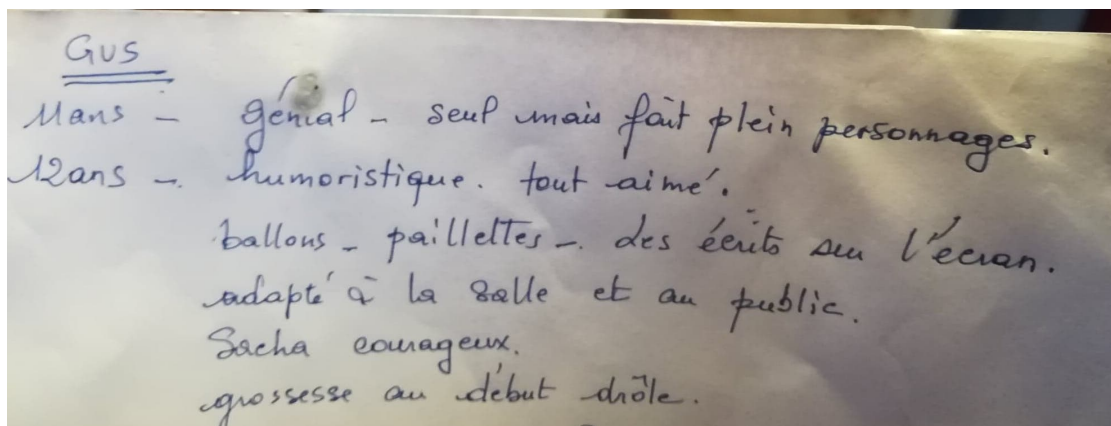 Gus
11ans - génial - seul mais fait plein personnages.
12ans -. humoristique. tout aimé.
ballons - paillettes -. des écrits sur l'écran.
adapté à la salle et au public.
Sacha courageux.
grossesse au début drôle.